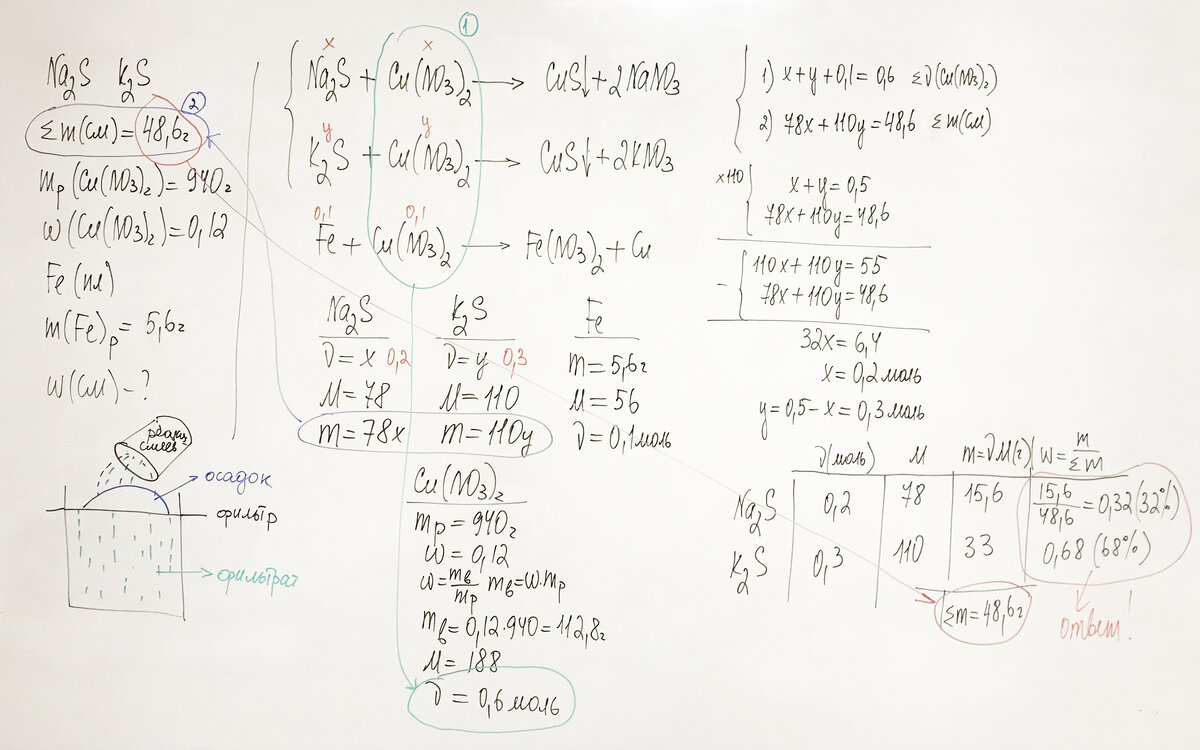 Na₂S K₂S
②
Σm(см) = 48,6г
mр(Cu(NO₃)₂) = 940г
w(Cu(NO₃)₂) = 0,12
Fe (пл)
m(Fe)р = 5,6г
w(см) - ?
реакц. смесь
осадок
фильтр
фильтрат
①
x x
Na₂S + Cu(NO₃)₂ → CuS↓ + 2NaNO₃
y y
K₂S + Cu(NO₃)₂ → CuS↓ + 2KNO₃
0,1 0,1
Fe + Cu(NO₃)₂ → Fe(NO₃)₂ + Cu
Na₂S K₂S Fe
ν = x 0,2 ν = y 0,3 m = 5,6г
M = 78 M = 110 M = 56
m = 78x m = 110y ν = 0,1 моль
Cu(NO₃)₂
mр = 940г
w = 0,12
w = mв/mр mв = w·mр
mв = 0,12·940 = 112,8г
M = 188
ν = 0,6 моль
1) x + y + 0,1 = 0,6 Σν(Cu(NO₃)₂)
2) 78x + 110y = 48,6 Σm(см)
x110 x + y = 0,5
78x + 110y = 48,6
- 110x + 110y = 55
78x + 110y = 48,6
32x = 6,4
x = 0,2 моль
y = 0,5 - x = 0,3 моль
ν(моль) M m = νM(г) w = m/Σm
Na₂S 0,2 78 15,6 15,6/48,6 = 0,32 (32%)
K₂S 0,3 110 33 0,68 (68%)
Σm = 48,6г
ответ!